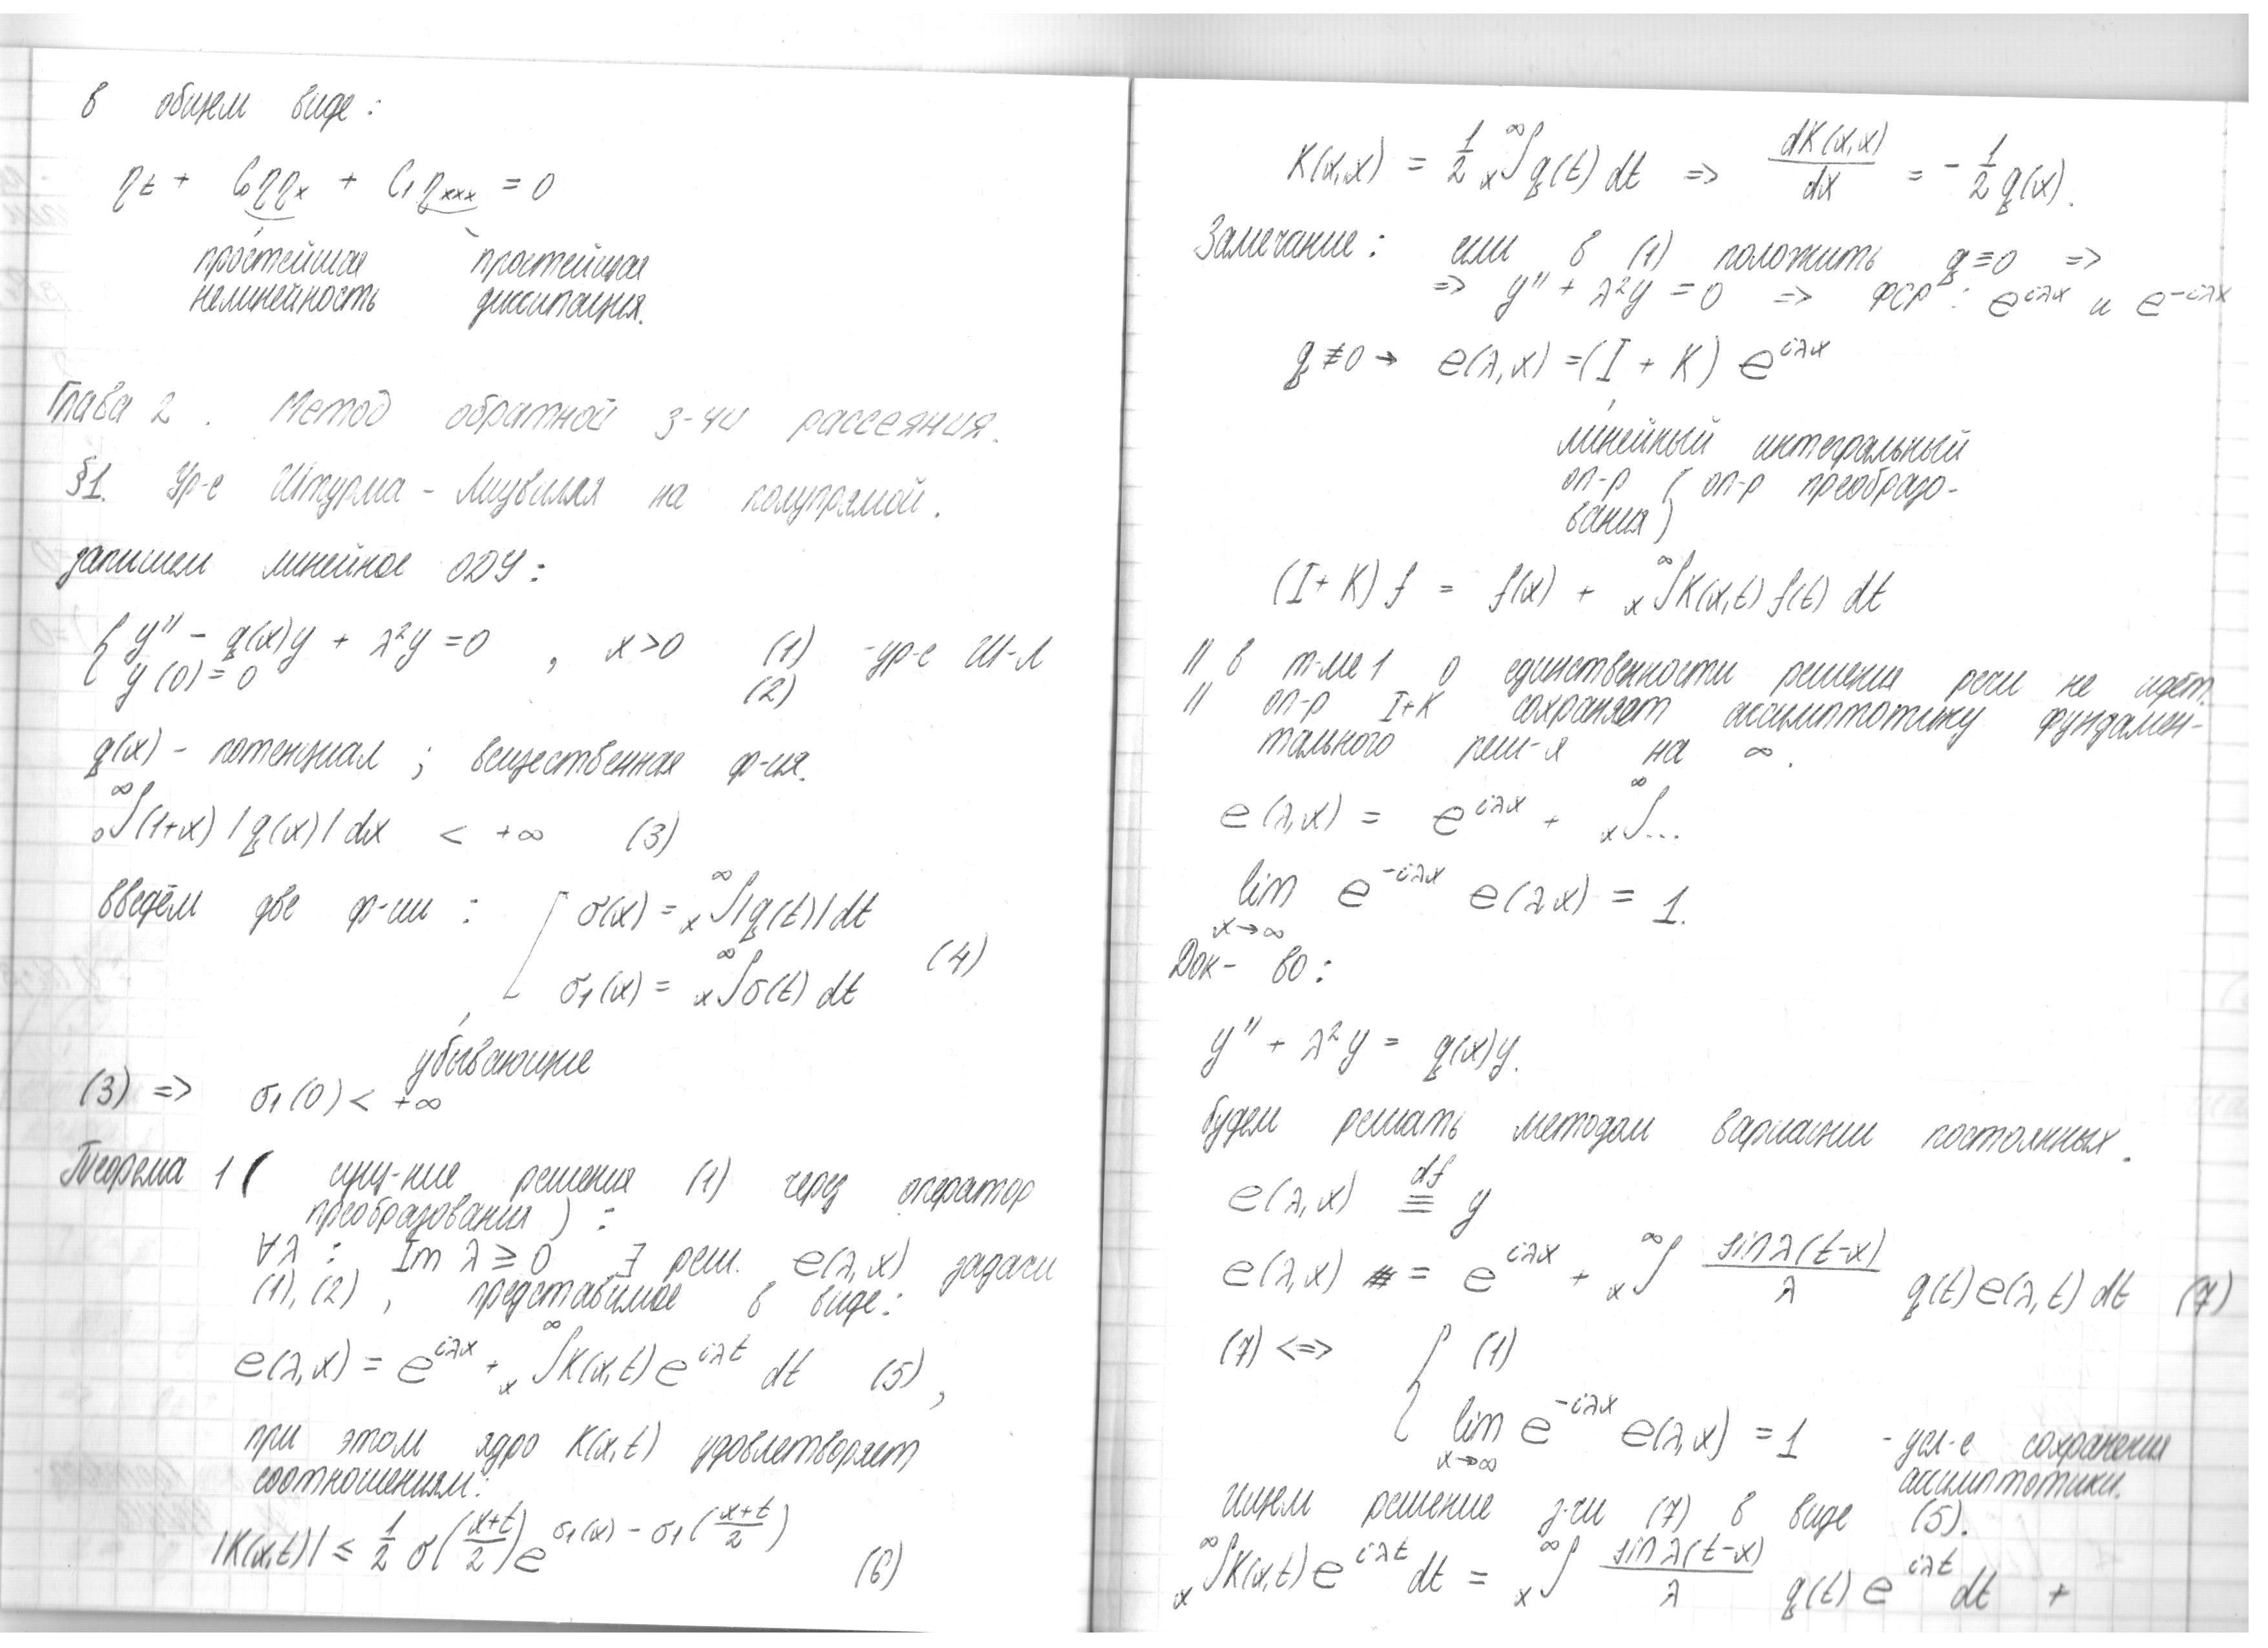 в общем виде:
ηt + C₀ηηx + C₁ηxxx = 0
простейшая простейшая
нелинейность диссипация.
Глава 2. Метод обратной з-чи рассеяния.
§1. Ур-е Штурма - Лиувилля на полупрямой.
запишем линейное ОДУ:
{ y'' - q(x)y + λ²y = 0 , x > 0 (1) - ур-е Ш-Л
y(0) = 0 (2)
q(x) - потенциал ; вещественная ф-ия.
₀∫^∞ (1+x) |q(x)| dx < +∞ (3)
введём две ф-ии : [ σ(x) = ₓ∫^∞ |q(t)| dt
σ₁(x) = ₓ∫^∞ σ(t) dt (4)
убывающие
(3) => σ₁(0) < +∞
Теорема 1 ( сущ-ние решения (1) через оператор
преобразования ) :
∀λ : Im λ ≥ 0 ∃ реш. e(λ,x) задачи
(1), (2) , представимое в виде:
e(λ,x) = e^{iλx} + ₓ∫^∞ K(x,t) e^{iλt} dt (5) ,
при этом ядро K(x,t) удовлетворяет
соотношениям:
|K(x,t)| ≤ 1/2 σ((x+t)/2) e^{σ₁(x) - σ₁((x+t)/2)} (6)
K(x,x) = 1/2 ₓ∫^∞ q(t) dt => dK(x,x)/dx = - 1/2 q(x).
Замечание: если в (1) положить q ≡ 0 =>
=> y'' + λ²y = 0 => ФСР : e^{iλx} и e^{-iλx}
q ≢ 0 → e(λ,x) = (I + K) e^{iλx}
линейный интегральный
оп-р ( оп-р преобразо-
вания )
(I + K) f = f(x) + ₓ∫^∞ K(x,t) f(t) dt
|| в т-ме 1 о единственности решения речи не идёт.
|| оп-р I+K сохраняет ассимптотику фундамен-
тального реш-я на ∞ .
e(λ,x) = e^{iλx} + ₓ∫^∞ ...
lim_{x→∞} e^{-iλx} e(λ,x) = 1.
Док-во:
y'' + λ²y = q(x)y.
будем решать методом вариации постоянных.
e(λ,x) ≝ y
e(λ,x) = e^{iλx} + ₓ∫^∞ sin λ(t-x)/λ q(t) e(λ,t) dt (7)
(7) <=> { (1)
lim_{x→∞} e^{-iλx} e(λ,x) = 1 - усл-е сохранения
ассимптотики.
ищем решение з-чи (7) в виде (5).
ₓ∫^∞ K(x,t) e^{iλt} dt = ₓ∫^∞ sin λ(t-x)/λ q(t) e^{iλt} dt +